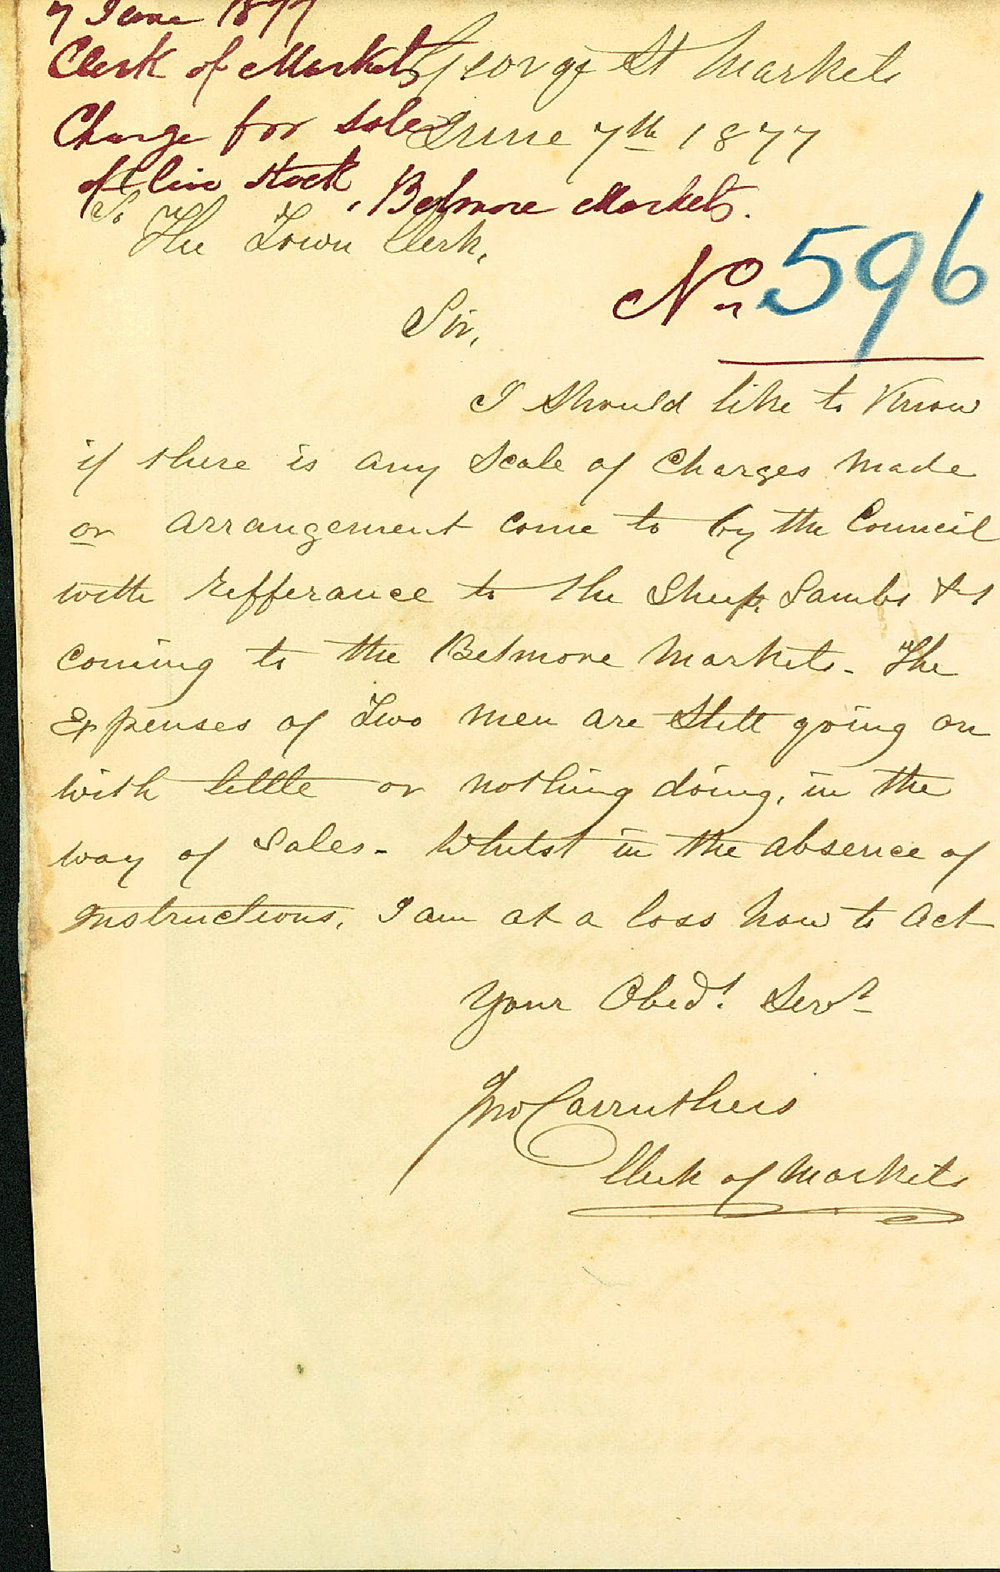 7 June 1877
Clerk of Markets
Charge for sale
of live stock, Belmore Markets.
George St Markets
June 7th 1877
To The Town Clerk,
No. 596
Sir,
I should like to Know
if there is any Scale of Charges Made
or arrangement Come to by the Council
with Refferance to the Sheep, Lambs &c
Coming to the Belmore Markets - The
Expenses of Two Men are Still going on
with little or nothing doing, in the
way of Sales - Whilst in the absence of
Instructions, I am at a loss how to Act
Your Obedt. Servt
Jno Carruthers
Clerk of Markets